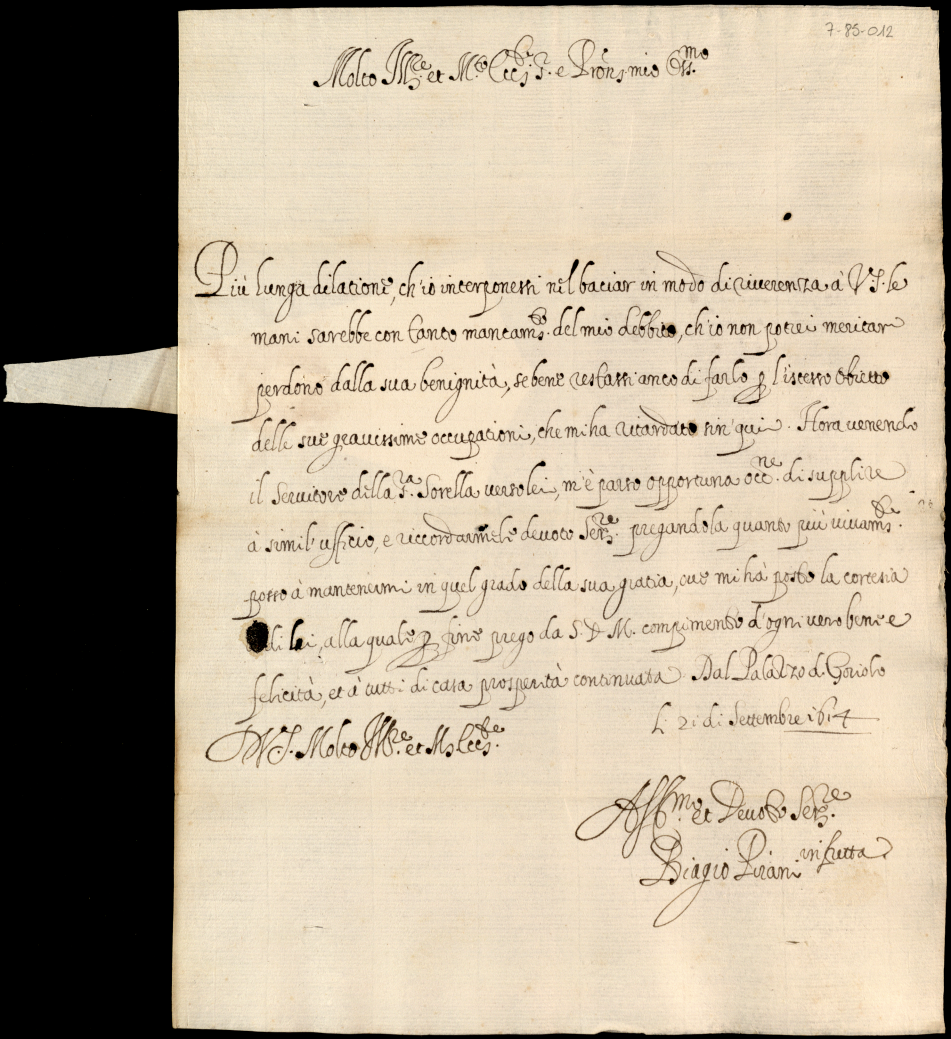 7-85-012
Molto Ill.re et M.to Ecc.te S.r e Pron mio Oss.mo
Più lunga dilatione, ch'io interponessi nel baciar in modo di riuerenza à V.S. le
mani sarebbe con tanto mancam.to del mio debbito, ch'io non potrei meritar
perdono dalla sua benignità, se bene restassi anco di farlo p l'istesso obietto
delle sue grauissime occupationi, che mi ha ritardato sin' qui. Hora venendo
il Seruitore della S.ra Sorella verso lei, m'è parso opportuna occ.ne di supplire
à simil' ufficio, e riccordarmele deuoto Ser.re pregandola quanto più viuam.te
posso à mantenermi in quel grado della sua gratia, oue mi hà posto la cortesia
di lei, alla quale p fine prego da S. D. M. compimento d'ogni vero bene e
felicità, et à tutti di casa prosperità continuata. Dal Palazzo di Goriolo
Li 21 di Settembre 1614
D V.S. Molto Ill.re et M. Ecc.te
Aff.mo et Deuoto Ser.re
Biagio Pirani in fretta